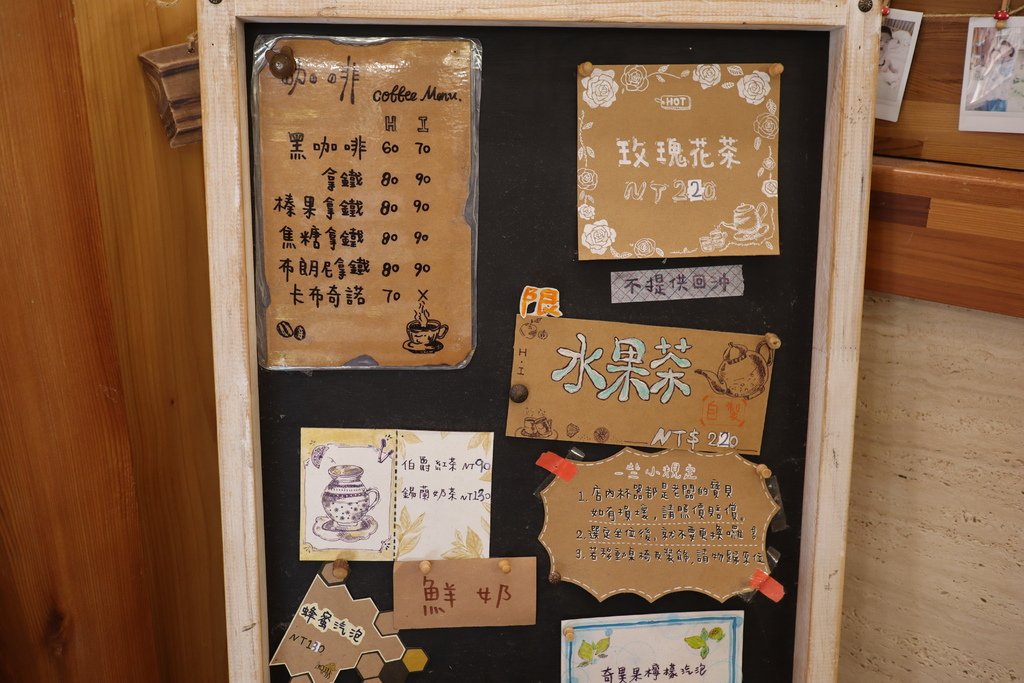 咖啡
coffee Menu.
H I
黑咖啡 60 70
拿鐵 80 90
榛果拿鐵 80 90
焦糖拿鐵 80 90
布朗尼拿鐵 80 90
卡布奇諾 70 X
HOT
玫瑰花茶
NT220
不提供回沖
限
H.I
水果茶
自製
NT$ 220
伯爵紅茶 NT90
錫蘭奶茶 NT130
鮮奶
蜂蜜汽泡
NT130
一些小規定
1. 店內杯器都是老闆的寶貝
如有損壞，請照價賠償。
2. 選定坐位後，就不要更換囉
3. 若移動桌椅及裝飾，請物歸原位
奇異果檸檬汽泡